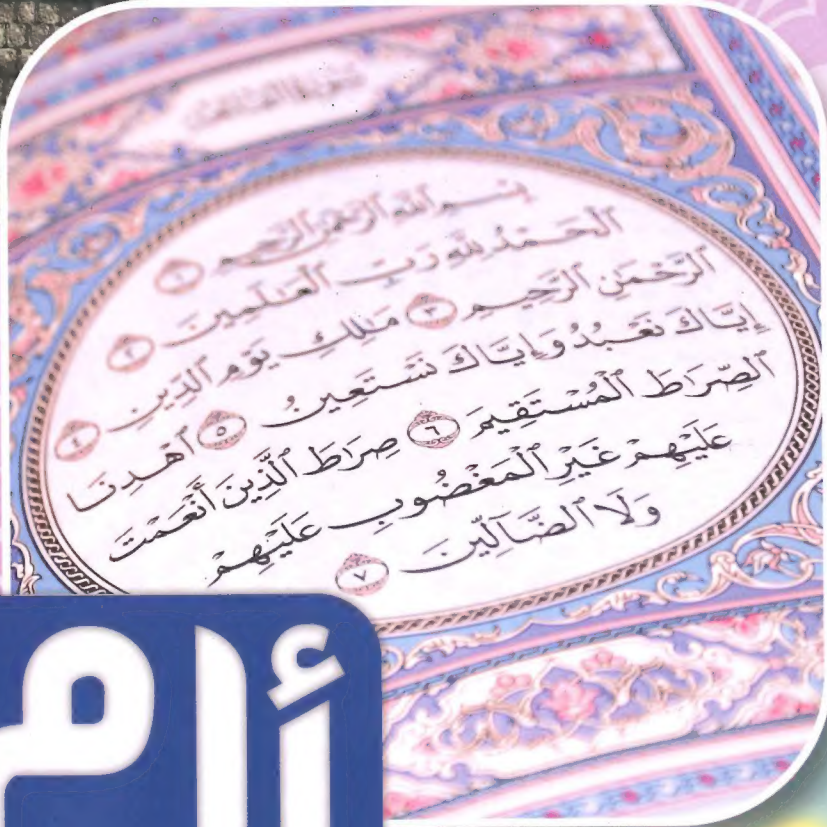 سورة الفاتحة
بِسْمِ ٱللَّهِ ٱلرَّحْمَٰنِ ٱلرَّحِيمِ ١
ٱلْحَمْدُ لِلَّهِ رَبِّ ٱلْعَٰلَمِينَ ٢
ٱلرَّحْمَٰنِ ٱلرَّحِيمِ ٣ مَٰلِكِ يَوْمِ ٱلدِّينِ ٤
إِيَّاكَ نَعْبُدُ وَإِيَّاكَ نَسْتَعِينُ ٥ ٱهْدِنَا
ٱلصِّرَٰطَ ٱلْمُسْتَقِيمَ ٦ صِرَٰطَ ٱلَّذِينَ أَنْعَمْتَ
عَلَيْهِمْ غَيْرِ ٱلْمَغْضُوبِ عَلَيْهِمْ
وَلَا ٱلضَّآلِّينَ ٧
أم